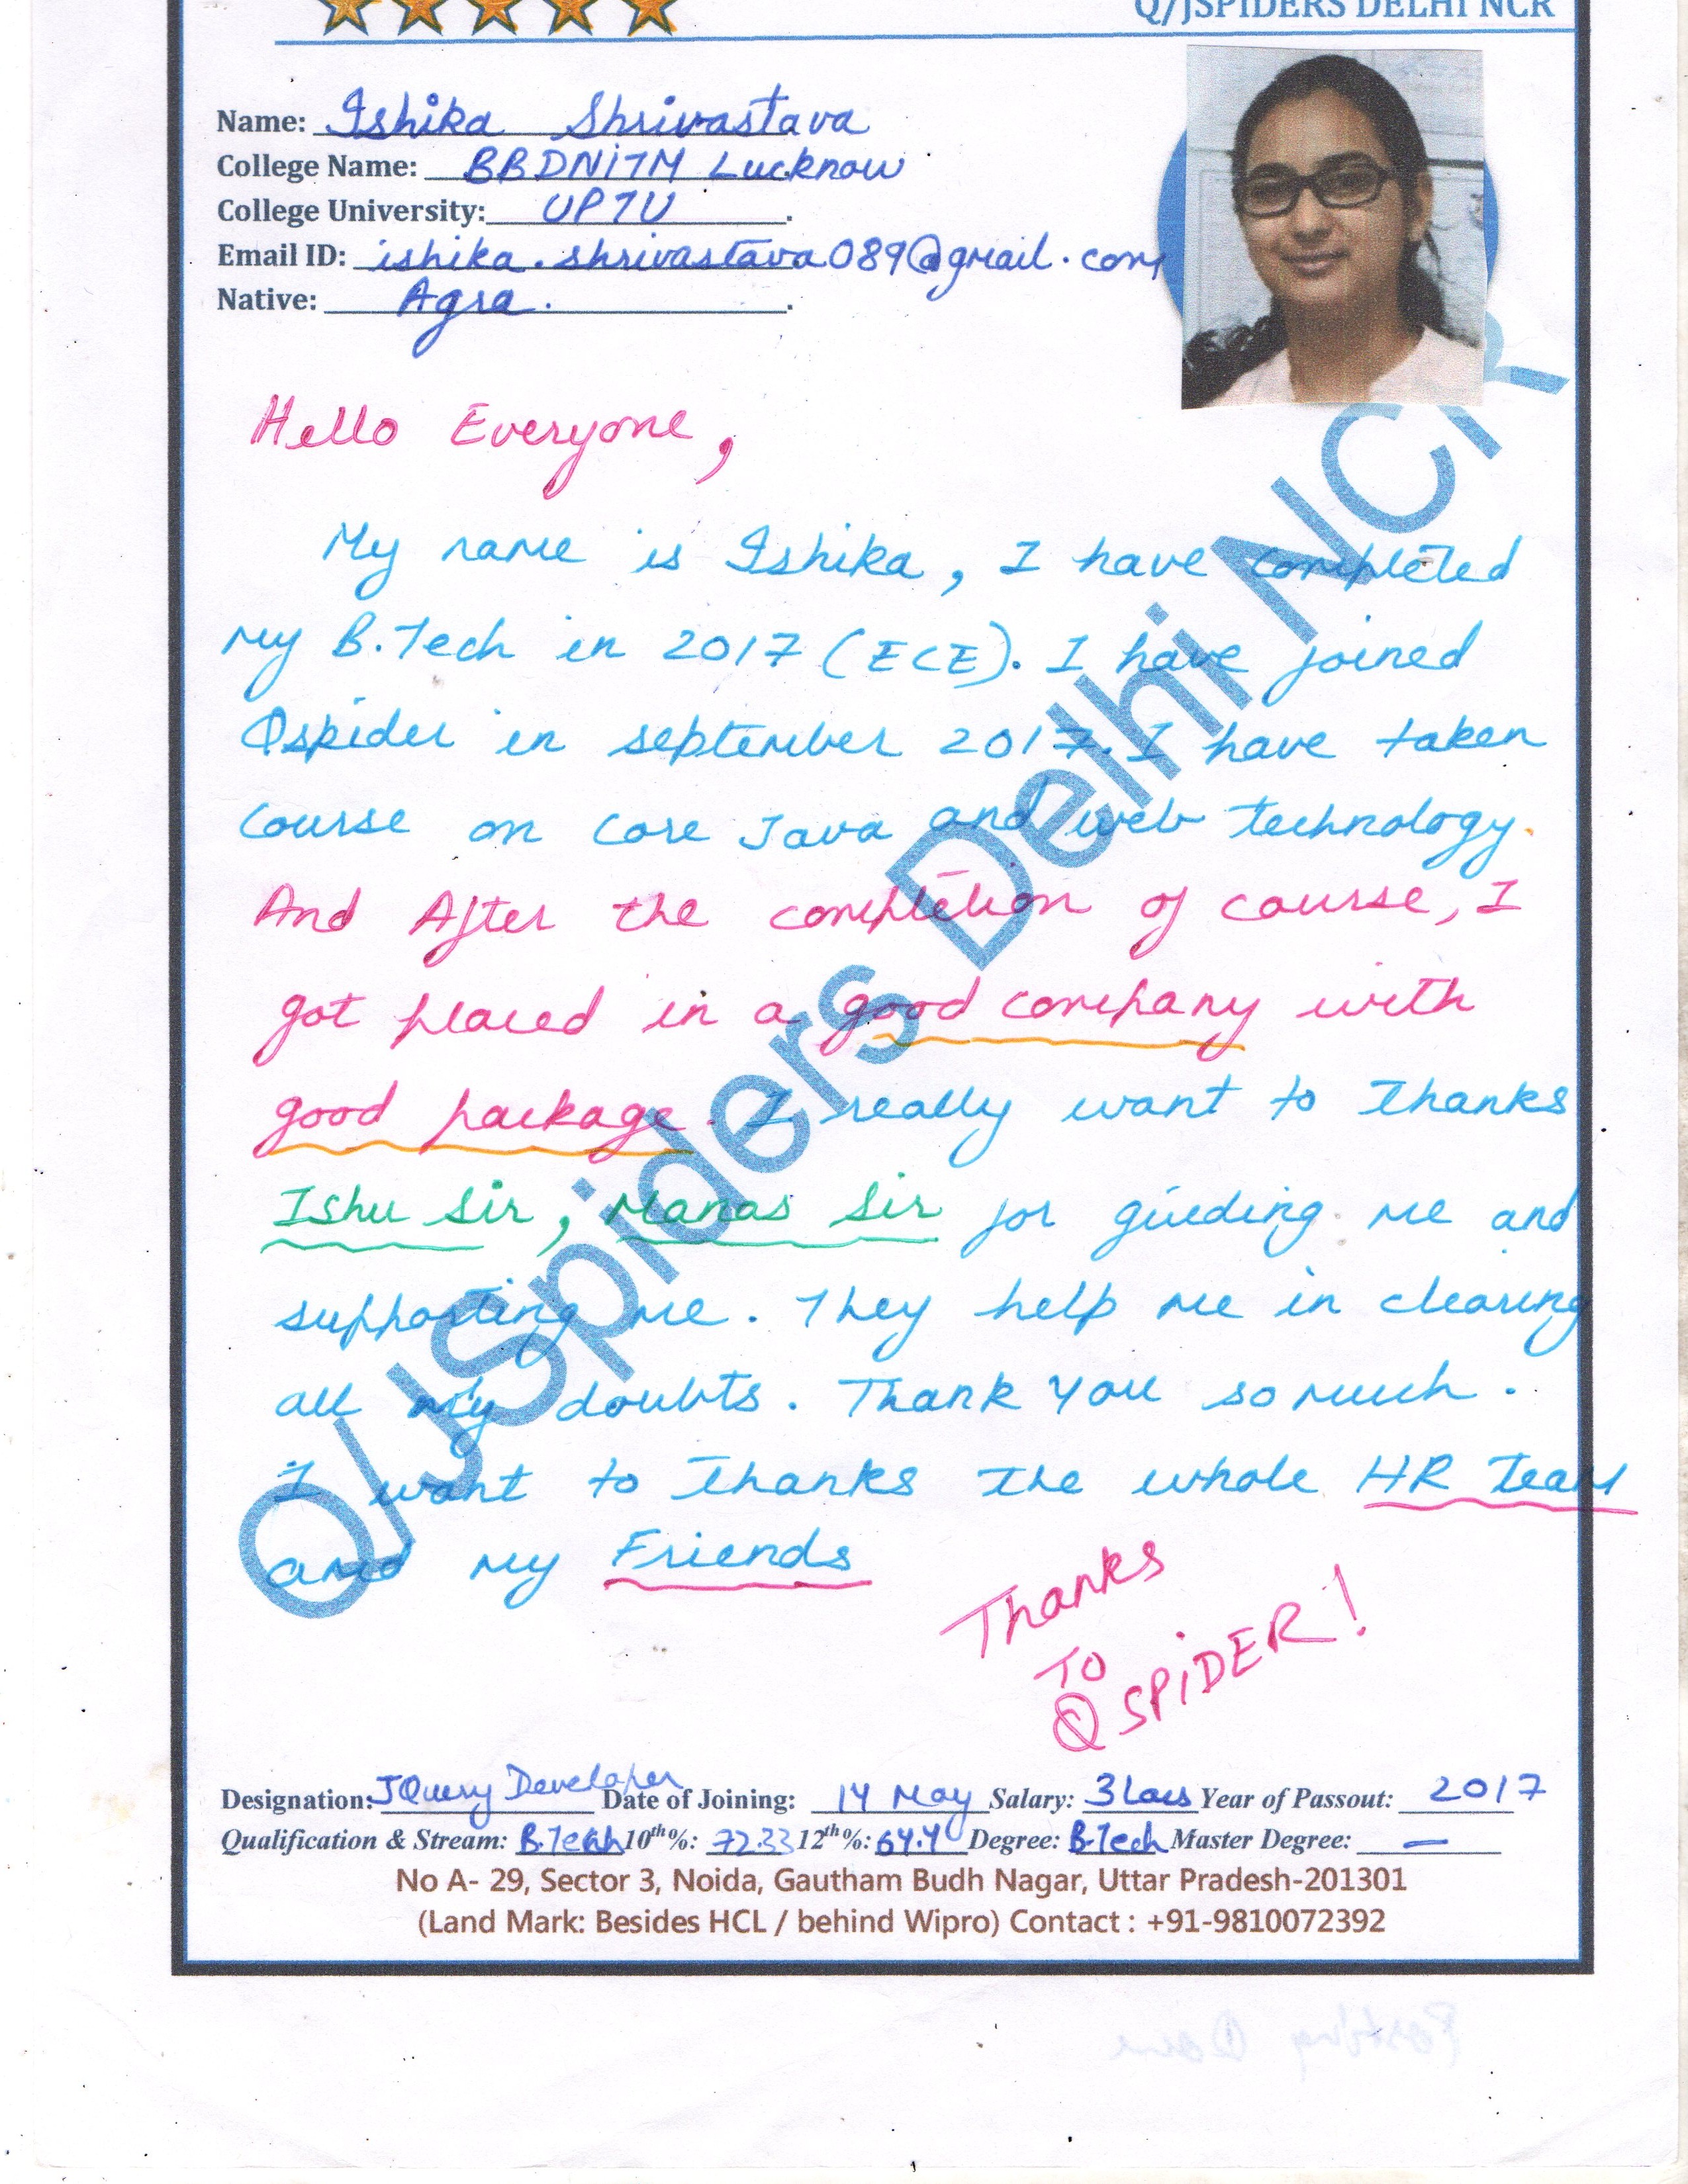 Q/JSPIDERS DELHI NCR
Name: Ishika Shrivastava
College Name: BBDNITM Lucknow
College University: UPTU
Email ID: ishika.shrivastava089@gmail.com
Native: Agra.
Hello Everyone,
My name is Ishika, I have completed
my B.Tech in 2017 (ECE). I have joined
Qspider in september 2017. I have taken
course on core Java and web technology.
And After the completion of course, I
got placed in a good company with
good package. I really want to thanks
Ishu Sir, Manas Sir for guiding me and
supporting me. They help me in clearing
all my doubts. Thank you so much.
I want to thanks the whole HR team
and my Friends
Thanks
TO
QSPiDER!
Q/JSpiders Delhi NCR
Designation: JQuery Developer Date of Joining: 14 May Salary: 3 Lacs Year of Passout: 2017
Qualification & Stream: B.Tech 10th%: 72.33 12th%: 64.4 Degree: B.Tech Master Degree: —
No A- 29, Sector 3, Noida, Gautham Budh Nagar, Uttar Pradesh-201301
(Land Mark: Besides HCL / behind Wipro) Contact : +91-9810072392